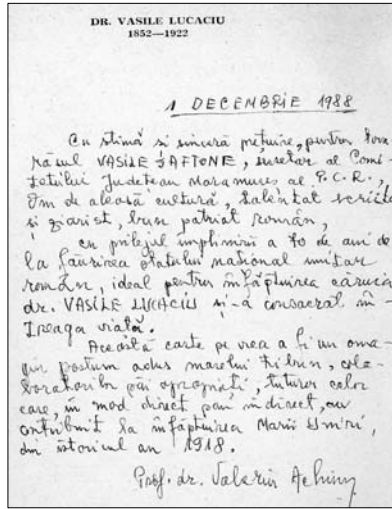 DR. VASILE LUCACIU
1852—1922
1 DECEMBRIE 1988
Cu stimă și sinceră prețuire, pentru tova-
rășul VASILE GAFTONE, secretar al Comi-
tetului Județean Maramureș al P.C.R.,
Om de aleasă cultură, talentat scriitor
și ziarist, bun patriot român,
cu prilejul împlinirii a 70 de ani de
la făurirea statului național unitar
român, ideal pentru înfăptuirea căruia
dr. VASILE LUCACIU și-a consacrat în-
treaga viață.
Această carte se vrea a fi un oma-
giu postum adus marelui tribun, cola-
boratorilor săi apropiați, tuturor celor
care, în mod direct sau indirect, au
contribuit la înfăptuirea Marii Uniri,
din istoricul an 1918.
Prof. dr. Valeriu Achim